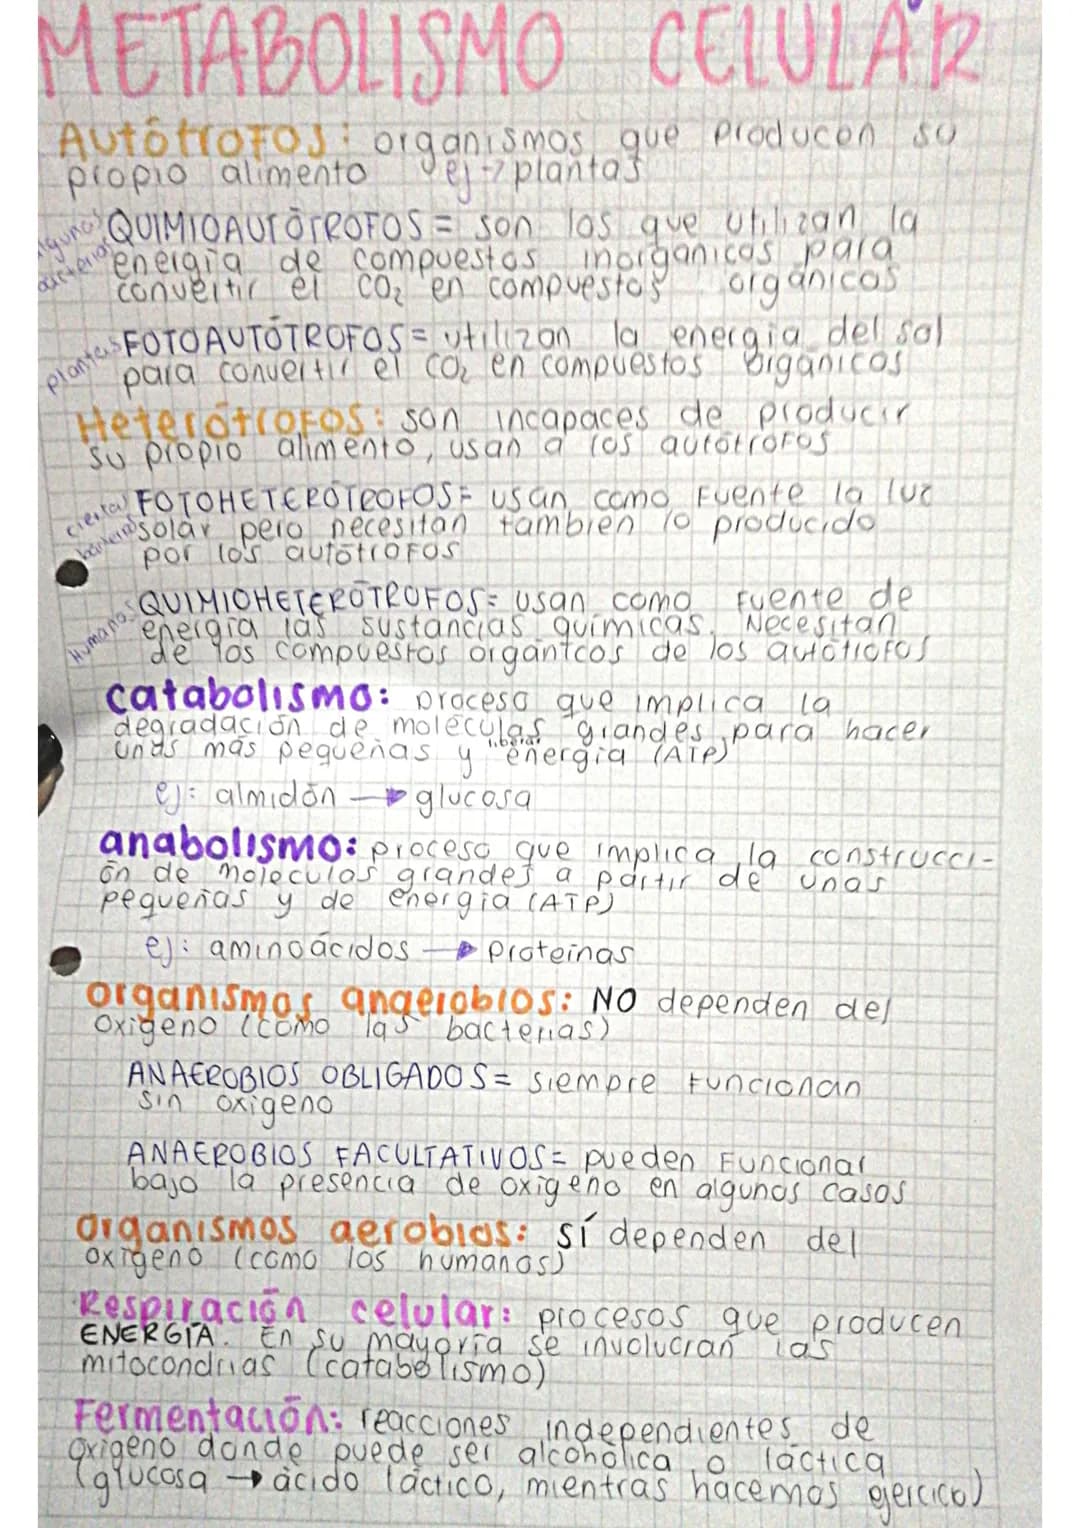 METABOLISMO CELULAR
Autótrofos: organismos que producen su
propio alimento ej → plantas
algunas bacterias
QUIMIOAUTÓTROFOS = son los que utilizan la
energía de compuestos inorgánicos para
convertir el CO₂ en compuestos orgánicos
plantas
FOTOAUTÓTROFOS = utilizan la energía del sol
para convertir el CO₂ en compuestos orgánicos
Heterótrofos: son incapaces de producir
su propio alimento, usan a los autótrofos
ciertas bacterias
FOTOHETERÓTROFOS = usan como fuente la luz
solar pero necesitan también lo producido
por los autótrofos
Humanos
QUIMIOHETERÓTROFOS = usan como fuente de
energía las sustancias químicas. Necesitan
de los compuestos orgánicos de los autótrofos
catabolismo: proceso que implica la
degradación de moléculas grandes para hacer
unas más pequeñas y "liberar" energía (ATP)
ej: almidón → glucosa
anabolismo: proceso que implica la construcci-
ón de moléculas grandes a partir de unas
pequeñas y de energía (ATP)
ej: aminoácidos → proteínas
organismos anaerobios: NO dependen del
oxígeno (como las bacterias)
ANAEROBIOS OBLIGADOS = siempre funcionan
sin oxígeno
ANAEROBIOS FACULTATIVOS = pueden funcionar
bajo la presencia de oxígeno en algunos casos
organismos aerobios: SÍ dependen del
oxígeno (como los humanos)
Respiración celular: procesos que producen
ENERGÍA. En su mayoría se involucran las
mitocondrias (catabolismo)
Fermentación: reacciones independientes de
oxígeno donde puede ser alcohólica o láctica
(glucosa → ácido láctico, mientras hacemos ejercico)